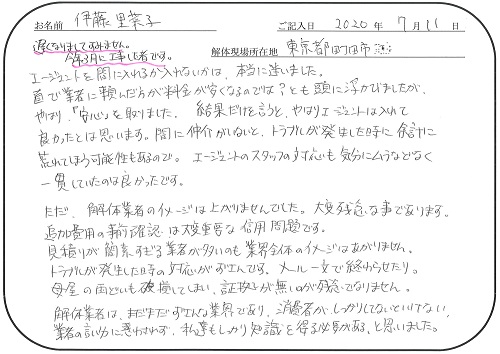 お名前 伊藤里菜子 ご記入日 2020年 7月11日
遅くなりましてすみません。
今年3月に工事した者です。
解体現場所在地 東京都町田市
エージェントを間に入れるか入れないかは、本当に迷いました。
直で業者に頼んだ方が料金が安くなるのでは?とも頭に浮かびましたが、
やはり、「安心」を取りました。結果だけを言うと、やはりエージェントは入れて
良かったとは思います。間に仲介がいないと、トラブルが発生した時に余計に
荒れてしまう可能性もあるので。エージェントのスタッフの対応も気分にムラなどなく
一貫していたのは良かったです。
ただ、解体業者のイメージは上がりませんでした。大変残念な事であります。
追加費用の事前確認は大変重要な信用問題です。
見積りが簡素すぎる業者が多いのも業界全体のイメージはあがりません。
トラブルが発生した時の対応がずさんです。メール一文で終わらせたり。
母屋の雨どいも破損してしまい、証拠が無いのが残念でなりません。
解体業者は、まだまだずさんな業界であり、消費者がしっかりしてないといけない、
業者の言い分に惑わされず、私達もしっかり知識を得る必要がある、と思いました。